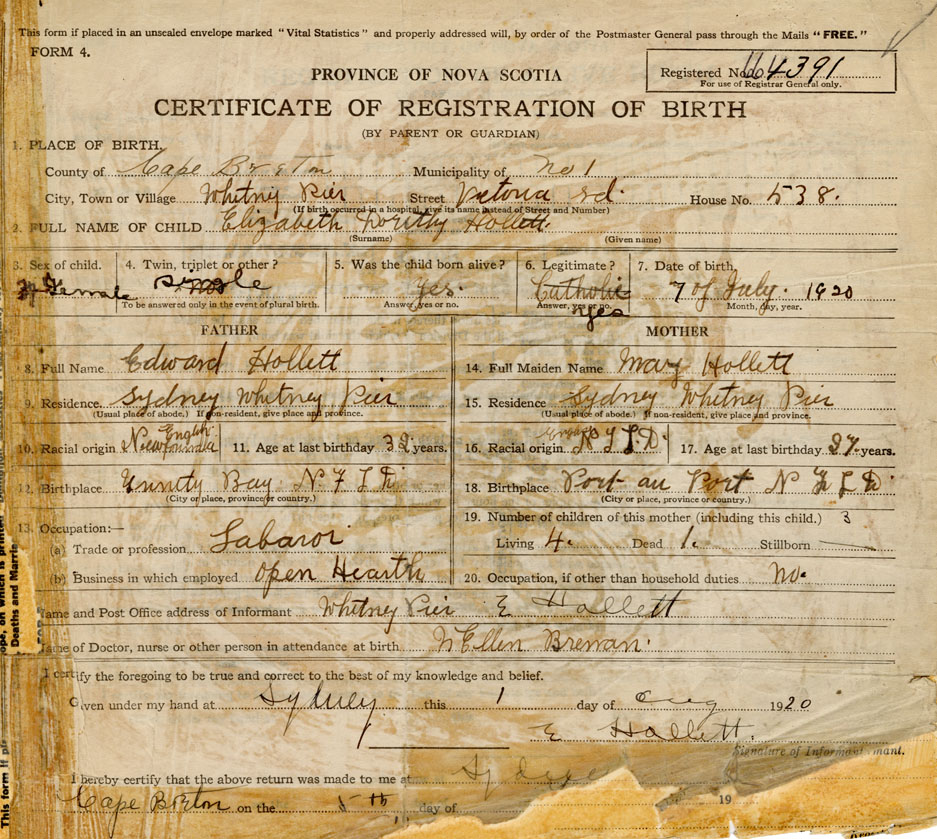 This form if placed in an unsealed envelope marked "Vital Statistics" and properly addressed will, by order of the Postmaster General pass through the Mails "FREE."
FORM 4.
PROVINCE OF NOVA SCOTIA
Registered No. 164391
For use of Registrar General only.
CERTIFICATE OF REGISTRATION OF BIRTH
(BY PARENT OR GUARDIAN)
1. PLACE OF BIRTH.
County of Cape Breton Municipality of No 1
City, Town or Village Whitney Pier Street Victoria rd. House No. 538.
(If birth occurred in a hospital, give its name instead of Street and Number)
2. FULL NAME OF CHILD Elizabeth Dorithy Hollett.
(Surname) (Given name)
3. Sex of child. 4. Twin, triplet or other? 5. Was the child born alive? 6. Legitimate? 7. Date of birth.
Female single yes. Catholic 7 of July. 1920
To be answered only in the event of plural birth. Answer, yes or no. Answer, yes or no. Month, day, year.
yes
FATHER MOTHER
8. Full Name Edward Hollett 14. Full Maiden Name Mary Hollett
9. Residence. Sydney Whitney Pier 15. Residence Sydney Whitney Pier
(Usual place of abode.) If non-resident, give place and province. (Usual place of abode.) If non-resident, give place and province.
English
10. Racial origin 11. Age at last birthday 32. years. 16. Racial origin N F L D. 17. Age at last birthday 27. years.
12. Birthplace Bay N F L D 18. Birthplace Port au Port N F L D.
(City or place, province or country.) (City or place, province or country.)
13. Occupation:— 19. Number of children of this mother (including this child.) 3
(a) Trade or profession Labaror Living 4. Dead 1. Stillborn
(b) Business in which employed open Hearth 20. Occupation, if other than household duties No.
Name and Post Office address of Informant Whitney Pier E Hollett
Name of Doctor, nurse or other person in attendance at birth Ellen Brennan.
I certify the foregoing to be true and correct to the best of my knowledge and belief.
Given under my hand at Sydney this 1 day of Aug 1920
E Hollett.
Signature of Informant
I hereby certify that the above return was made to me at Sydney
Cape Breton on the 5th day of 19